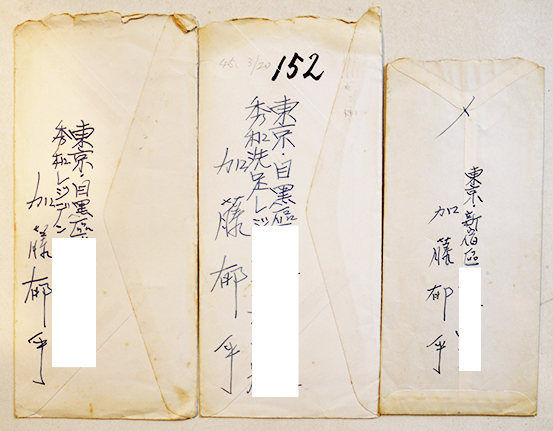 東京・目黒區
秀和レジデン
加藤郁乎
45. 3/20
152
東京・目黒區
秀和洗足レジ
加藤郁乎
〆
東京新宿區
加藤郁乎